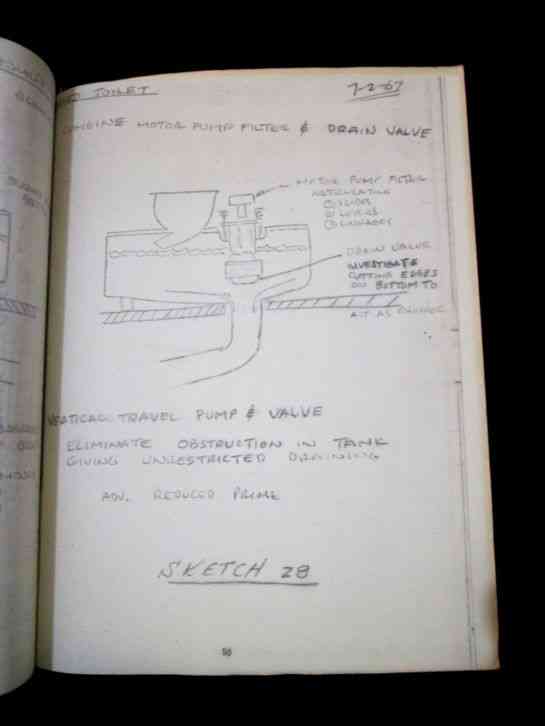 TOILET
7-2-67
COMBINE MOTOR PUMP FILTER & DRAIN VALVE
MOTOR PUMP FILTER
① SLIDES
② LEVERS
③ LINKAGES
DRAIN VALVE
INVESTIGATE
CUTTING EDGES
ON BOTTOM TO
ACT AS
VERTICAL TRAVEL PUMP & VALVE
ELIMINATE OBSTRUCTION IN TANK
GIVING UNRESTRICTED DRAINING
ADV. REDUCED PRIME
SKETCH 28